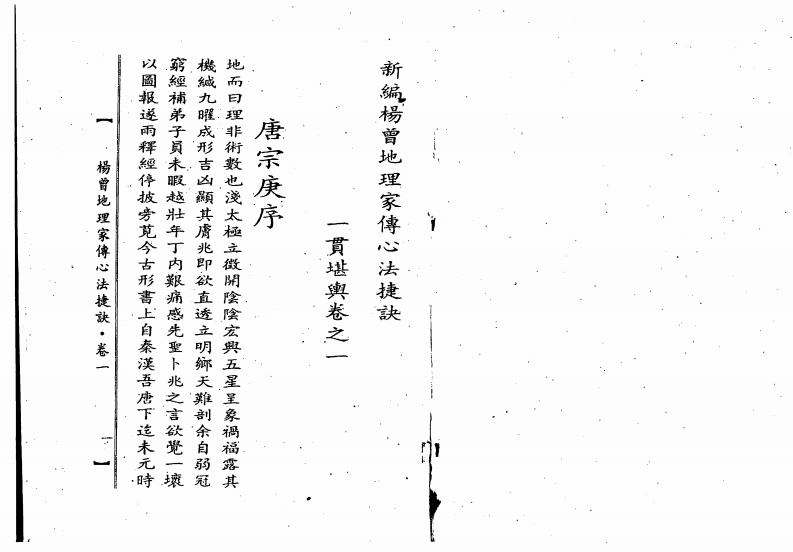 新編楊曾地理家傳心法捷訣
一貫堪輿卷之一
唐宗庚序
地而曰理非術數也淺太極立微開陰陰宏興五星呈象禍福露其
機緘九曜成形吉凶顯其膚兆即欲直透立明鄉天難剖余自弱冠
窮經補弟子員未暇越壯年丁内艱痛感先聖卜兆之言欲覺一壞
以圖報遂雨釋經停披旁覓今古形書上自秦漢吾唐下迄未元時
【 楊曾地理家傳心法捷訣·卷一 一 】